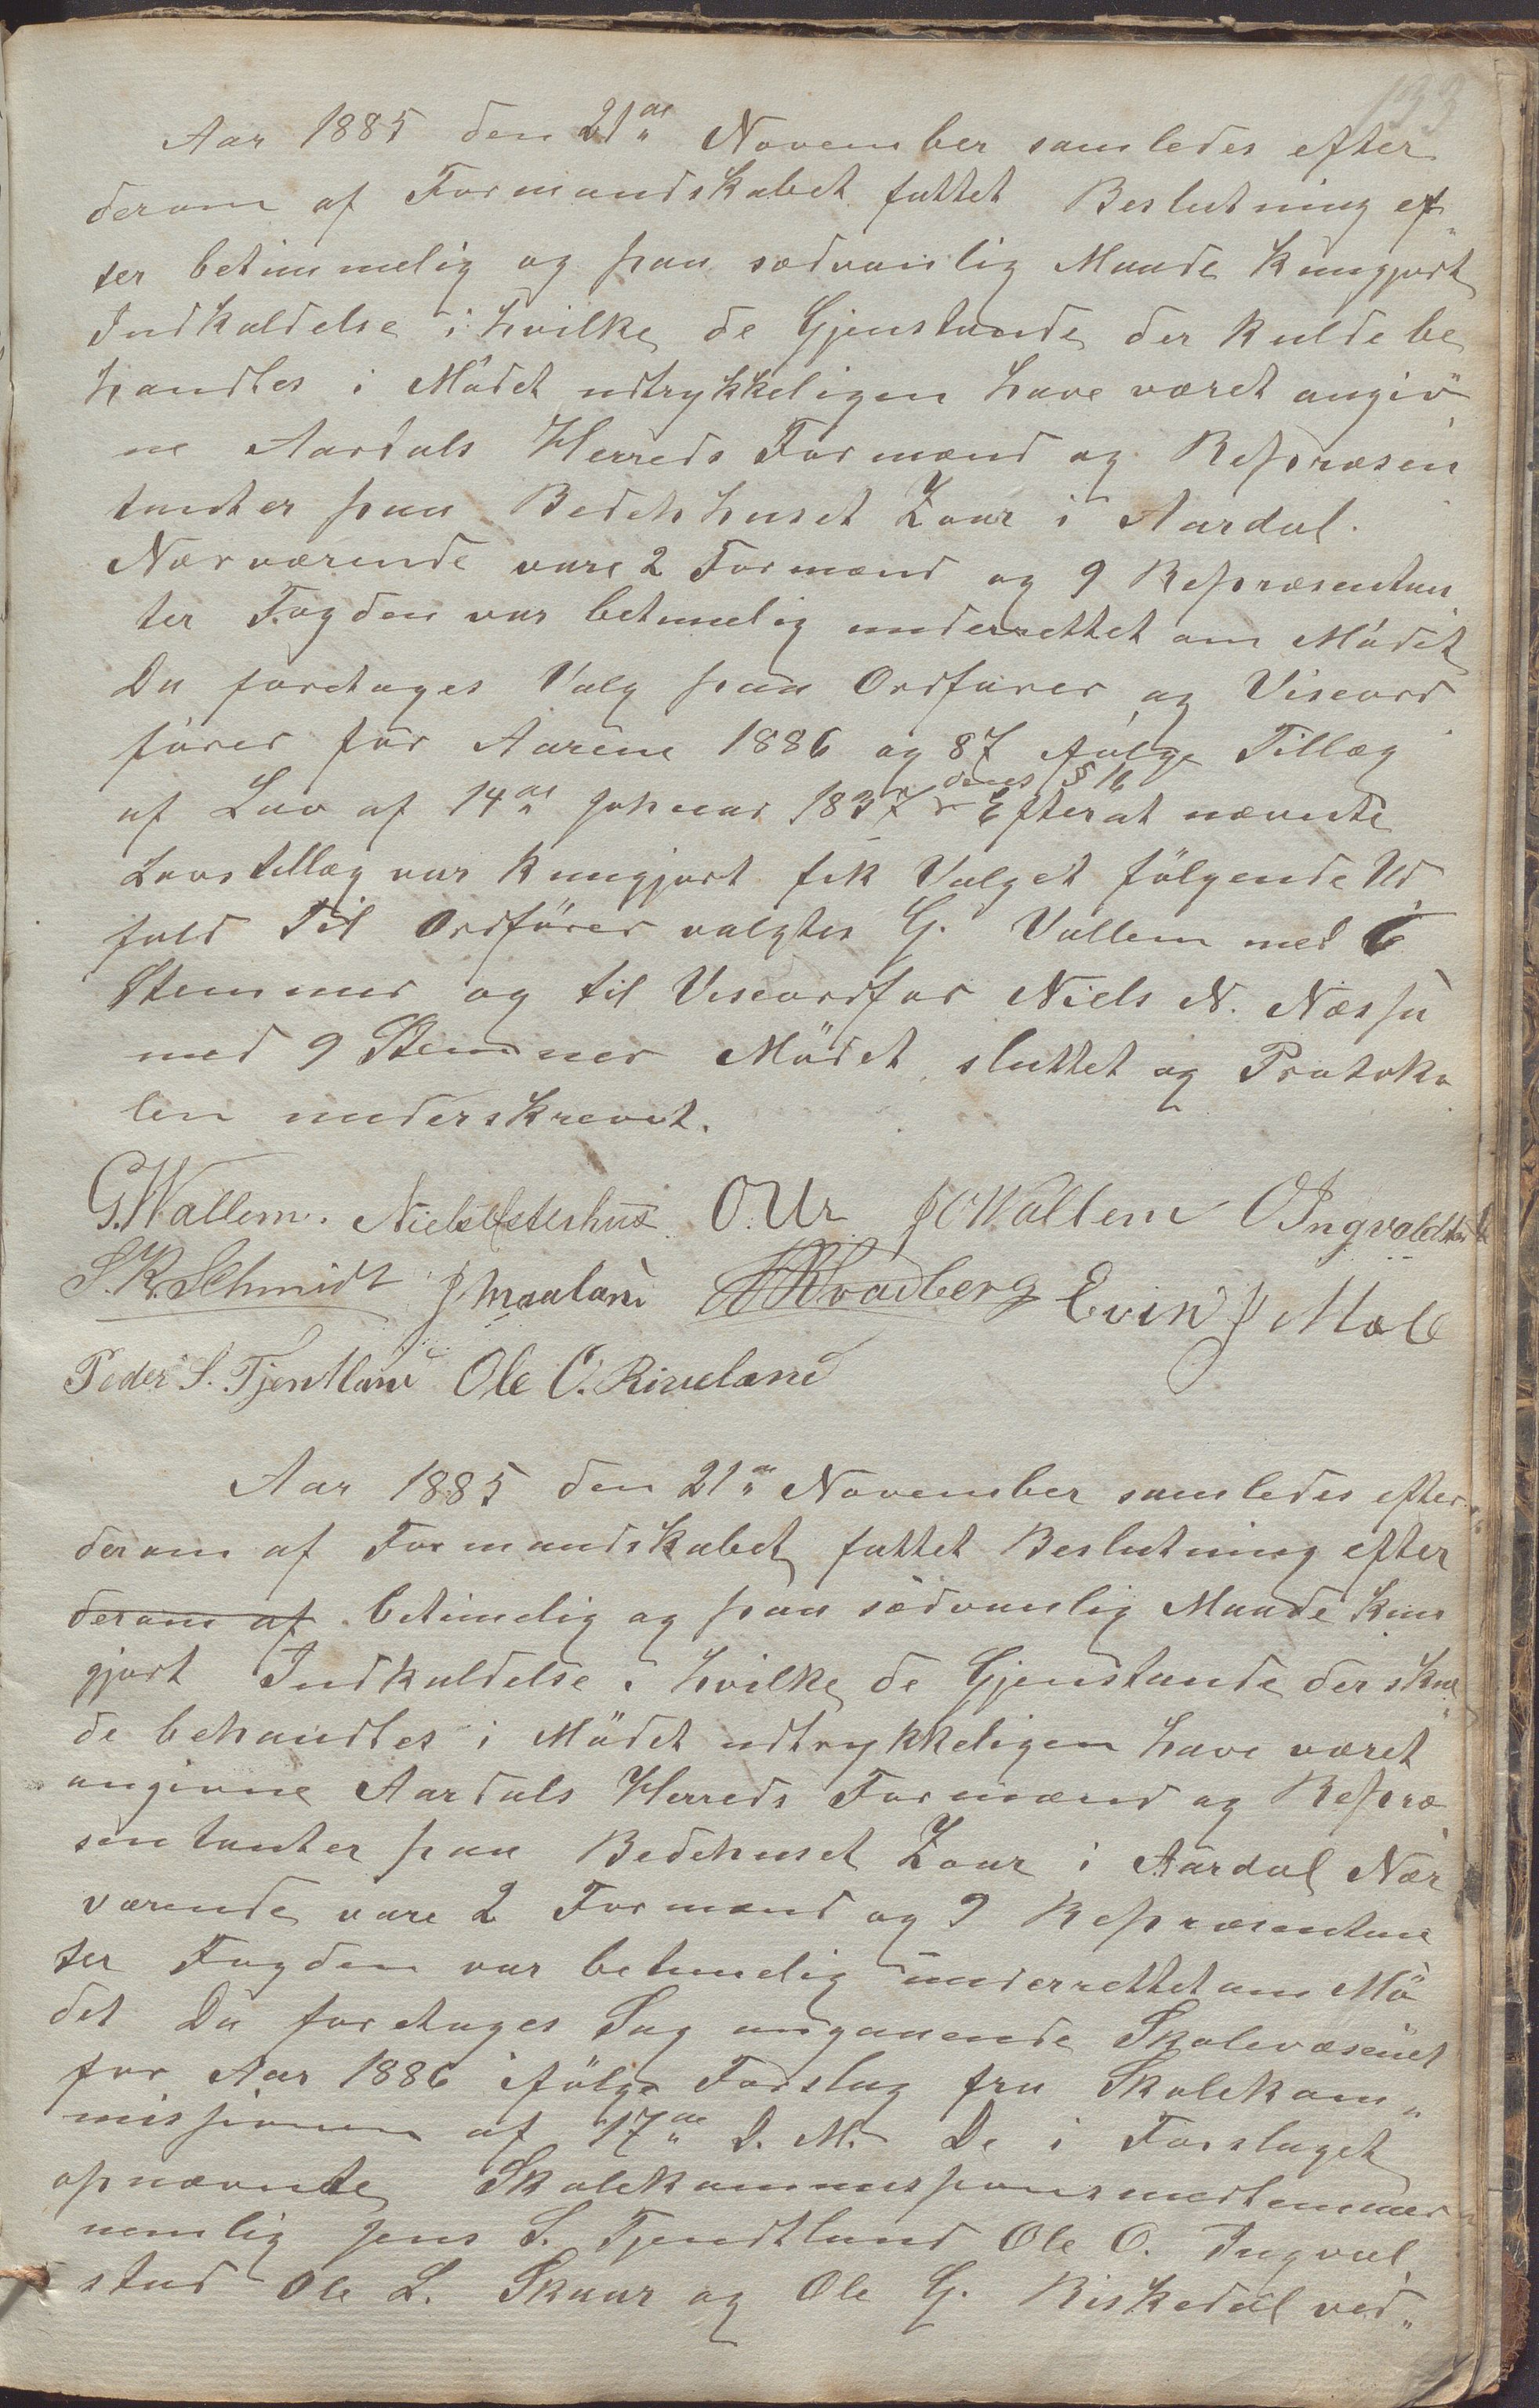 133
Aar 1885 den 21de November samledes efter
derom af Formandskabet fattet Beslutning ef„
ter betimmelig og paa sædvanlig Maade kungjort
Indkaldelse i hvilke de Gjenstande der kulde be
handles i Mödet udtrykkeligen have været angiv„
ne Aardals Herreds Formænd og Repræsen
tanter paa Bedehhuset Zoar i Aardal.
Nærværende vare 2 Formænd og 9 Repræsentan
ter Fogden var betimelig underrettet om Mödet
Da foretages Valg paa Ordförer og Viseord
förer for Aarene 1886 og 87 ifölge Tillæg
af Lov af 14de Januar 1837 dens § 16 Efterat nævnte
Lovstillæg var kungjort fik Valget fölgende Ud
fald Til Ordförer valgtes G. Vallem med 6
Stemmer og til Viseordför Niels N. Næssa
med 9 Stemmer Mödet sluttet og Protoko
len underskrevet.
G. Wallem. Niels Østerhus O. Ur J O Wallem O Ingvaldstad
S. K. Schmidt J Maaland Kvadberg Evin J Mæle
Peder S. Tjentland Ole O. Riveland
Aar 1885 den 21de November samledes efter
derom af Formandskabet fattet Beslutning efter
derom af betimelig og paa sædvanlig Maade kun
gjort Indkaldelse i hvilke de Gjenstande der skul„
de behandles i Mödet udtrykkeligen have været
angivne Aardals Herreds Formænd og Repræ
sentanter paa Bedehuset Zoar i Aardal Nær
værende vare 2 Formænd og 9 Repræsentan
ter Fogden var betimelig underrettet om Mö
det Da foretages Sag angaaende Skolevæsenet
for Aar 1886 ifölge Forslag fra Skolekom„
missionen af 17de D. M. De i Forslaget
opnævnte Skolekommissionsmedlemmer
nemlig Jens S. Tjendtland Ole O. Ingval
stad Ole L. Skaar og Ole G. Riskedal ved„